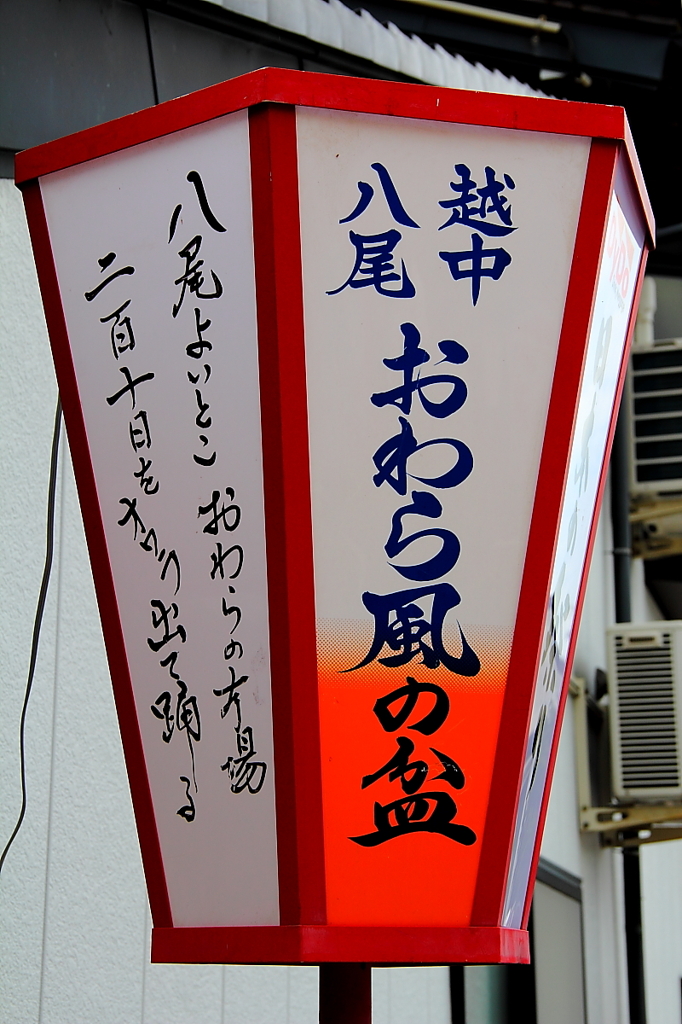 越中
八尾
おわら風の盆
八尾よいとこ おわらの本場
二百十日を オワラ 出て踊る